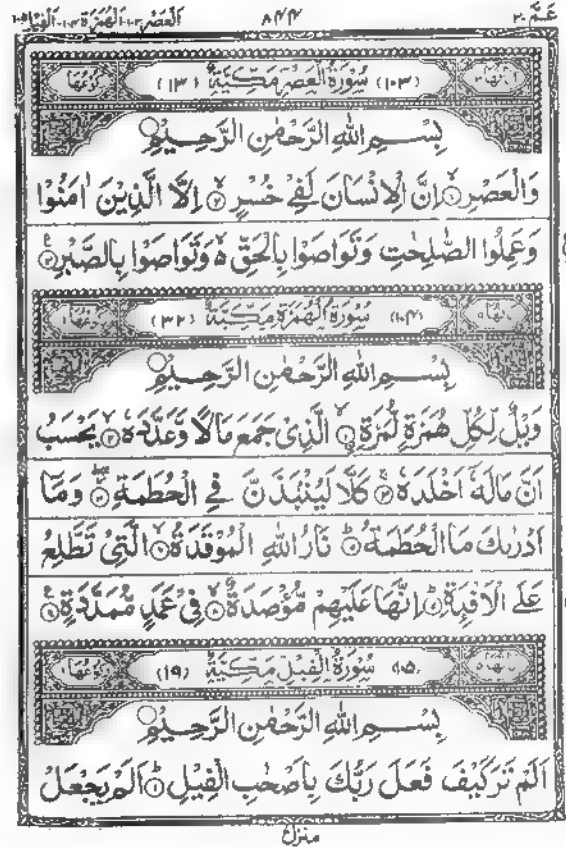 عَمَّ ٣٠ ٨٤٤ اَلْعَصْر ١٠٣ اَلْهُمَزَة ١٠٤ اَلْفِيْل ١٠٥
اٰيَاتُهَا ٣ (١٠٣) سُوْرَةُ الْعَصْرِ مَكِّيَّةٌ (١٣) رُكُوْعُهَا ١
بِسْمِ اللّٰهِ الرَّحْمٰنِ الرَّحِيْمِ
وَالْعَصْرِ ۙ﴿۱﴾ اِنَّ الْاِنْسَانَ لَفِيْ خُسْرٍ ۙ﴿۲﴾ اِلَّا الَّذِيْنَ اٰمَنُوْا
وَعَمِلُوا الصّٰلِحٰتِ وَتَوَاصَوْا بِالْحَقِّ ۙ۬ وَتَوَاصَوْا بِالصَّبْرِ ﴿۳﴾
اٰيَاتُهَا ٩ (١٠٤) سُوْرَةُ الْهُمَزَةِ مَكِّيَّةٌ (٣٢) رُكُوْعُهَا ١
بِسْمِ اللّٰهِ الرَّحْمٰنِ الرَّحِيْمِ
وَيْلٌ لِّكُلِّ هُمَزَةٍ لُّمَزَةٍ ۙ﴿۱﴾ الَّذِيْ جَمَعَ مَالًا وَّعَدَّدَهٗ ۙ﴿۲﴾ يَحْسَبُ
اَنَّ مَالَهٗٓ اَخْلَدَهٗ ۚ﴿۳﴾ كَلَّا لَيُنْۢبَذَنَّ فِي الْحُطَمَةِ ۖ﴿۴﴾ وَمَاۤ
اَدْرٰىكَ مَا الْحُطَمَةُ ؕ﴿۵﴾ نَارُ اللّٰهِ الْمُوْقَدَةُ ۙ﴿۶﴾ الَّتِيْ تَطَّلِعُ
عَلَى الْاَفْـِٕدَةِ ؕ﴿۷﴾ اِنَّهَا عَلَيْهِمْ مُّؤْصَدَةٌ ۙ﴿۸﴾ فِيْ عَمَدٍ مُّمَدَّدَةٍ ﴿۹﴾
اٰيَاتُهَا ٥ ١٠٥ سُوْرَةُ الْفِيْلِ مَكِّيَّةٌ (١٩) رُكُوْعُهَا ١
بِسْمِ اللّٰهِ الرَّحْمٰنِ الرَّحِيْمِ
اَلَمْ تَرَ كَيْفَ فَعَلَ رَبُّكَ بِاَصْحٰبِ الْفِيْلِ ؕ﴿۱﴾ اَلَمْ يَجْعَلْ
منزل